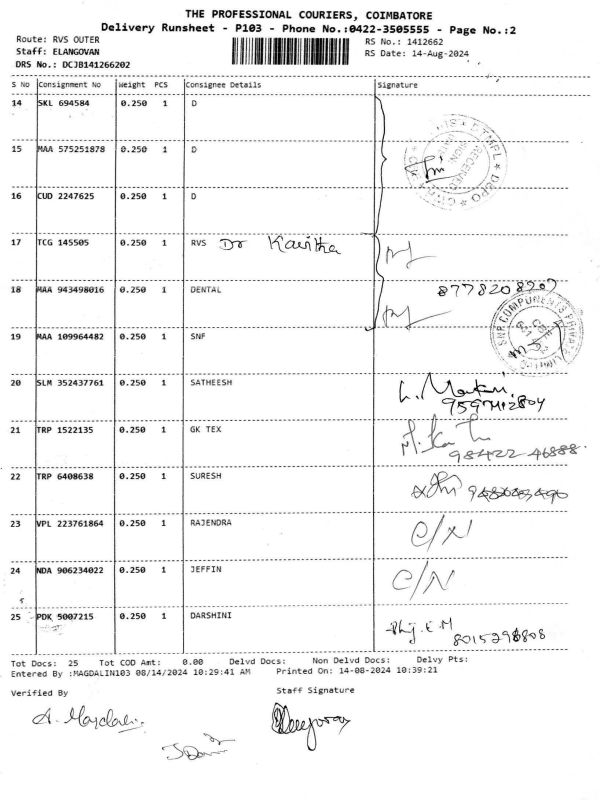 THE PROFESSIONAL COURIERS, COIMBATORE
Delivery Runsheet - P103 - Phone No.:0422-3505555 - Page No.:2
Route: RVS OUTER RS No.: 1412662
Staff: ELANGOVAN RS Date: 14-Aug-2024
DRS No.: DCJB141266202
S No Consignment No Weight PCS Consignee Details Signature
14 SKL 694584 0.250 1 D
15 MAA 575251878 0.250 1 D
16 CUD 2247625 0.250 1 D
RECEIVED
17 TCG 145505 0.250 1 RVS Dr Kavitha
18 MAA 943498016 0.250 1 DENTAL 8778208207
19 MAA 109964482 0.250 1 SNF
SNF COMPONENTS PRIVATE
20 SLM 352437761 0.250 1 SATHEESH
21 TRP 1522135 0.250 1 GK TEX
98422 46888
22 TRP 6408638 0.250 1 SURESH
23 VPL 223761864 0.250 1 RAJENDRA C/N
24 NDA 906234022 0.250 1 JEFFIN C/N
25 PDK 5007215 0.250 1 DARSHINI
8015298808
Tot Docs: 25 Tot COD Amt: 0.00 Delvd Docs: Non Delvd Docs: Delvy Pts:
Entered By :MAGDALIN103 08/14/2024 10:29:41 AM Printed On: 14-08-2024 10:39:21
Verified By Staff Signature